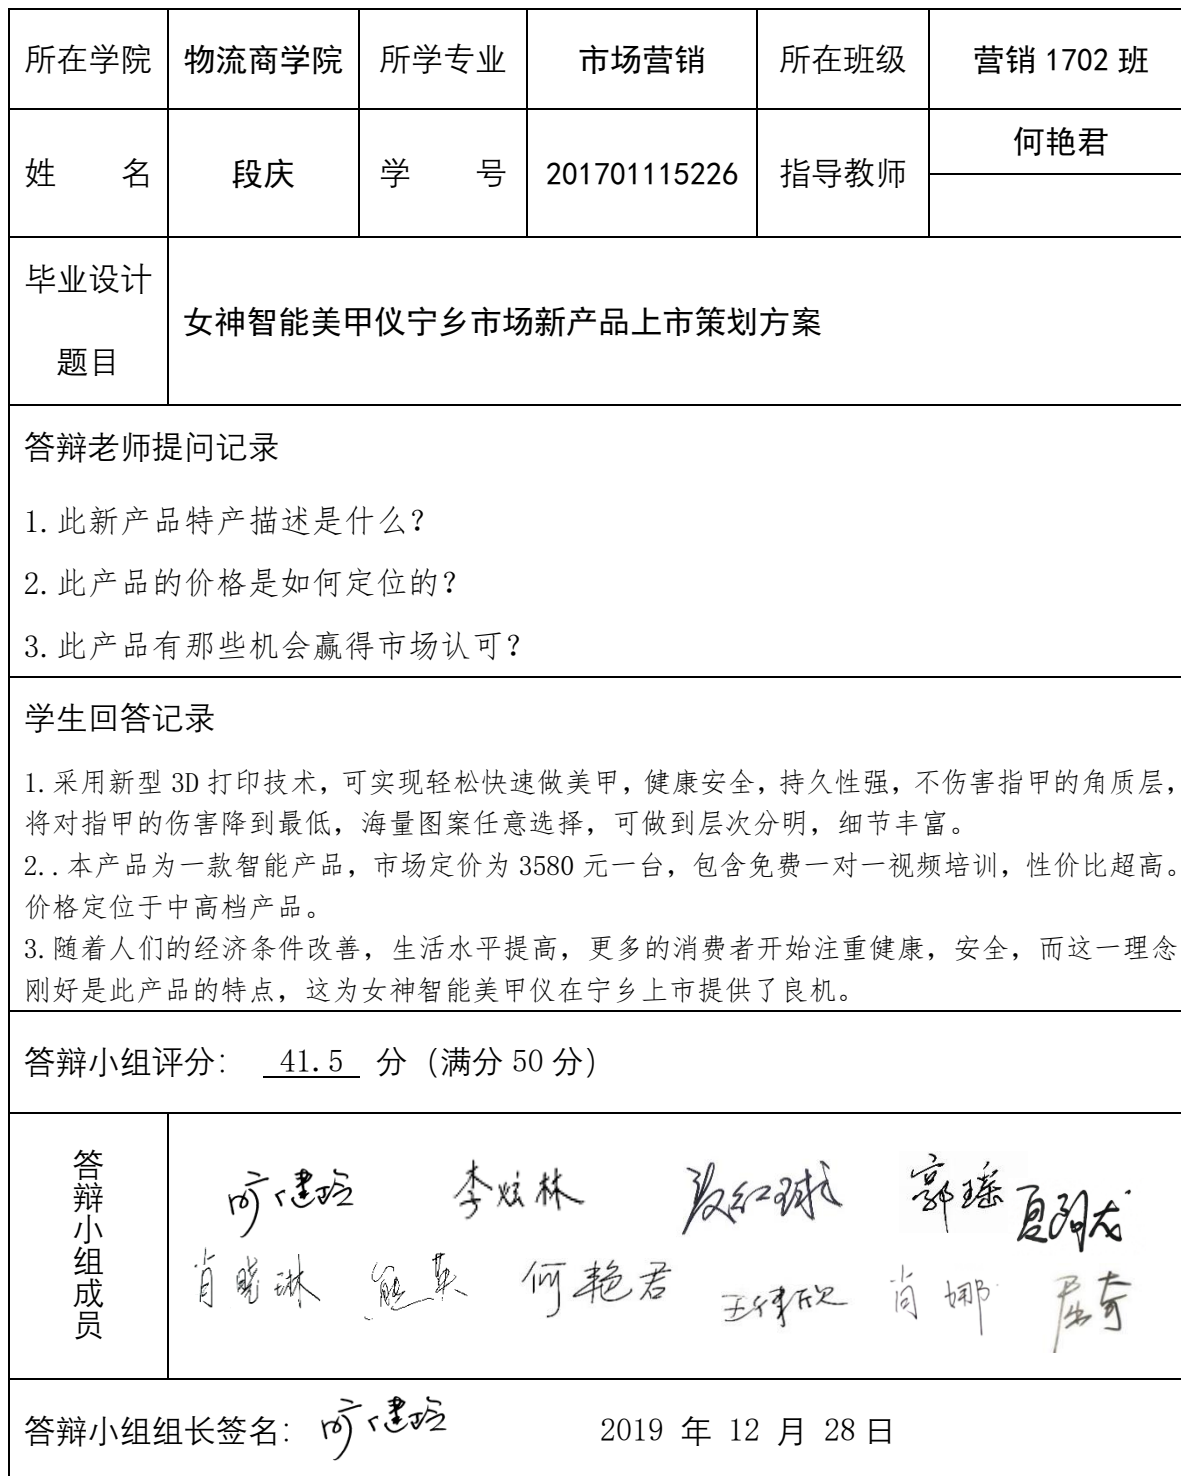 所在学院 物流商学院 所学专业 市场营销 所在班级 营销 1702 班
姓 名 段庆 学 号 201701115226 指导教师 何艳君
毕业设计
题目
女神智能美甲仪宁乡市场新产品上市策划方案
答辩老师提问记录
1.此新产品特产描述是什么？
2.此产品的价格是如何定位的？
3.此产品有那些机会赢得市场认可？
学生回答记录
1.采用新型 3D 打印技术，可实现轻松快速做美甲，健康安全，持久性强，不伤害指甲的角质层，
将对指甲的伤害降到最低，海量图案任意选择，可做到层次分明，细节丰富。
2..本产品为一款智能产品，市场定价为 3580 元一台，包含免费一对一视频培训，性价比超高。
价格定位于中高档产品。
3.随着人们的经济条件改善，生活水平提高，更多的消费者开始注重健康，安全，而这一理念
刚好是此产品的特点，这为女神智能美甲仪在宁乡上市提供了良机。
答辩小组评分： 41.5 分（满分 50 分）
答辩小组成员
李炫林 段红球 郭瑶
肖晓琳 熊英 何艳君 肖娜 屈奇
答辩小组组长签名： 2019 年 12 月 28 日